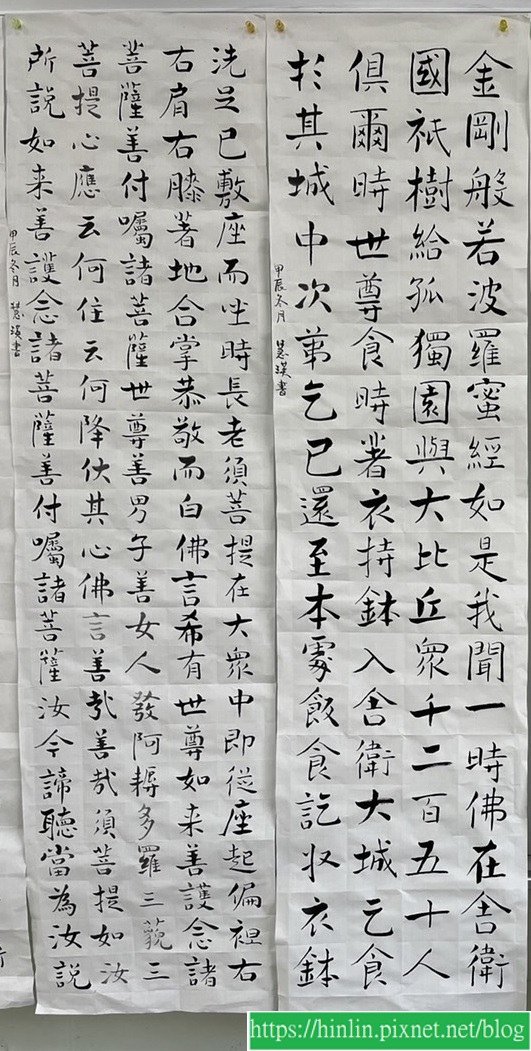 金剛般若波羅蜜經如是我聞一時佛在舍衛
國祇樹給孤獨園與大比丘眾千二百五十人
俱爾時世尊食時著衣持鉢入舍衛大城乞食
於其城中次第乞已還至本處飯食訖収衣鉢
甲辰冬月 慧瑛書
洗足已敷座而坐時長老須菩提在大眾中即從座起偏袒右
右肩右膝著地合掌恭敬而白佛言希有世尊如来善護念諸
菩薩善付囑諸菩薩世尊善男子善女人發阿耨多羅三藐三
菩提心應云何住云何降伏其心佛言善哉善哉須菩提如汝
所說如来善護念諸菩薩善付囑諸菩薩汝今諦聽當為汝說
甲辰冬月 慧瑛書
https://hinlin.pixnet.net/blog